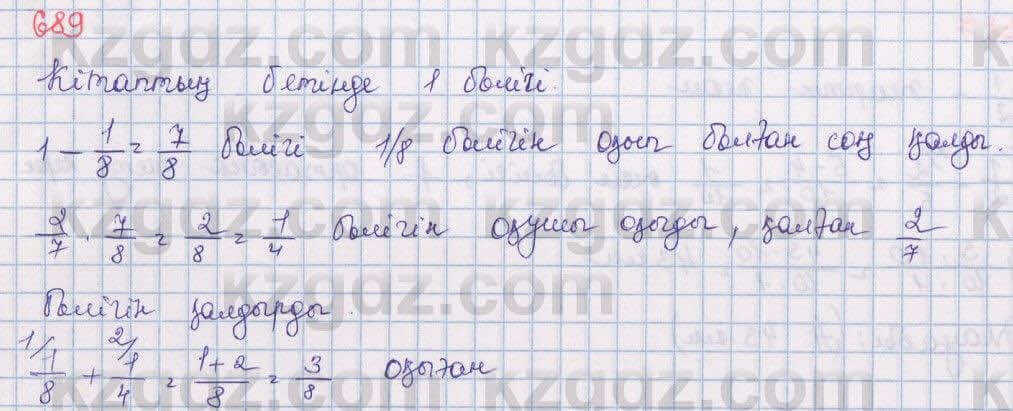 689
Кітаптың бетінде 1 бөлігі.
1 - 1/8 = 7/8 бөлігі 1/8 бөлігін оқып болған соң қалды.
2/7 · 7/8 = 2/8 = 1/4 бөлігін оқушы оқыды, қалған 2/7
бөлігін қалдырды.
1/ 1/8 + 2/ 1/4 = 1+2/8 = 3/8 оқыған
kzgdz.com